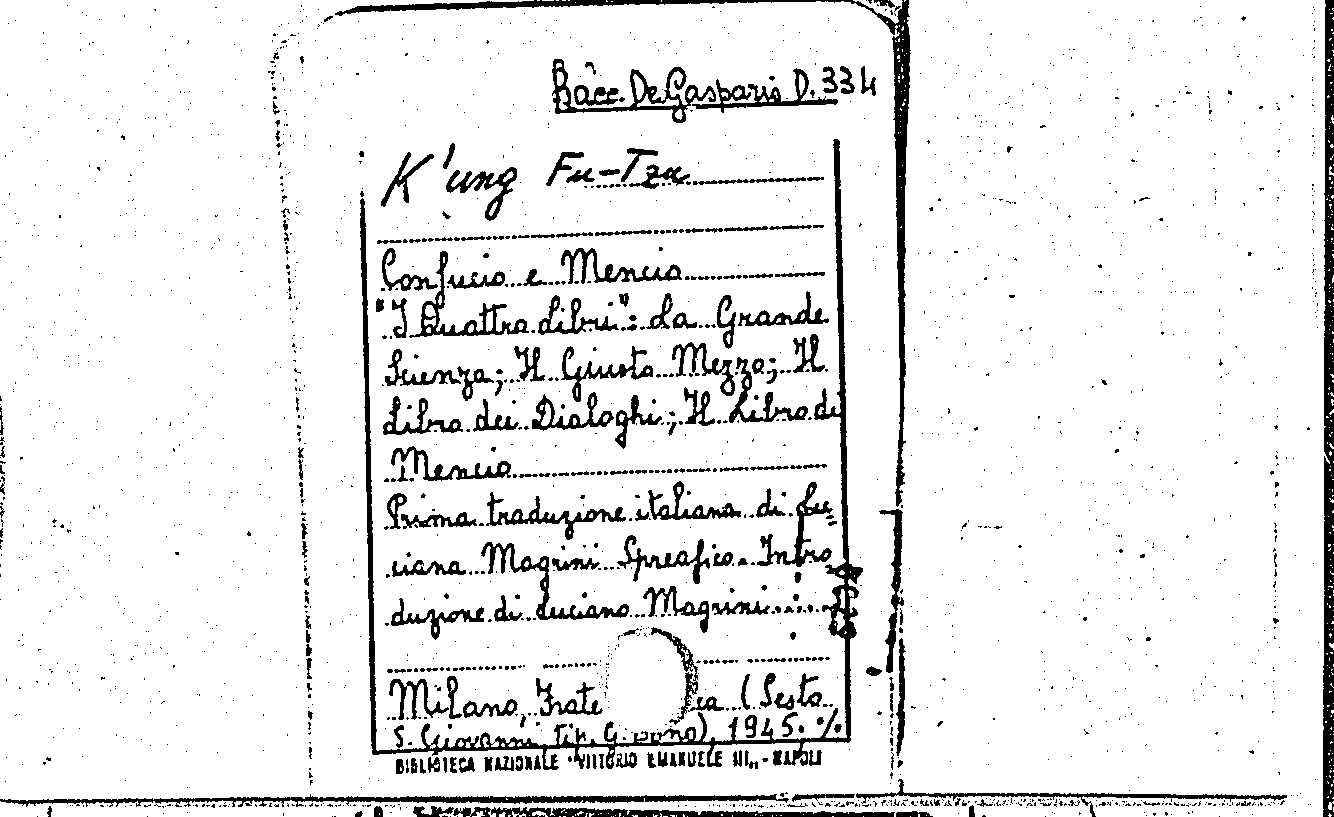 Racc. De Gasparis D. 334
K'ung Fu-Tzu
Confucio e Mencio
"I Quattro Libri": La Grande
Scienza; Il Giusto Mezzo; Il
Libro dei Dialoghi; Il Libro di
Mencio
Prima traduzione italiana di Lu=
ciana Magrini Spreafico. Intro
duzione di Luciano Magrini
Milano, Frate ca (Sesto
S. Giovanni, tip. G. 1945. %
BIBLIOTECA NAZIONALE "VITTORIO EMANUELE III" - NAPOLI